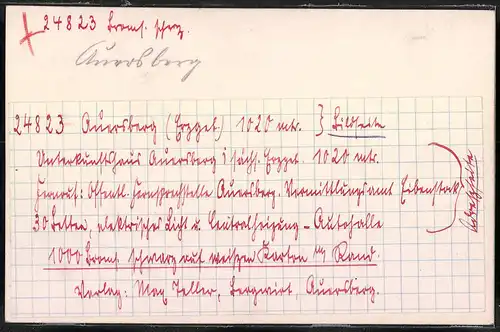 24823 Broms. schwz.
Auersberg
24823 Auersberg (Erzgeb) 1020 mtr. } Bildseite
Unterkunftshaus Auersberg i/sächs. Erzgeb. 1020 mtr.
Fernruf: Öffentl. Fernsprechstelle Auersberg. Vermittlungsamt Eibenstock
30 Betten, elektrisches Licht u. Centralheizung – Autohalle
1000 Broms. schwarz auf weißen Karton m/ Rand.
Verlag: Max Teller, Bergwirt, Auersberg.
Adreßseite